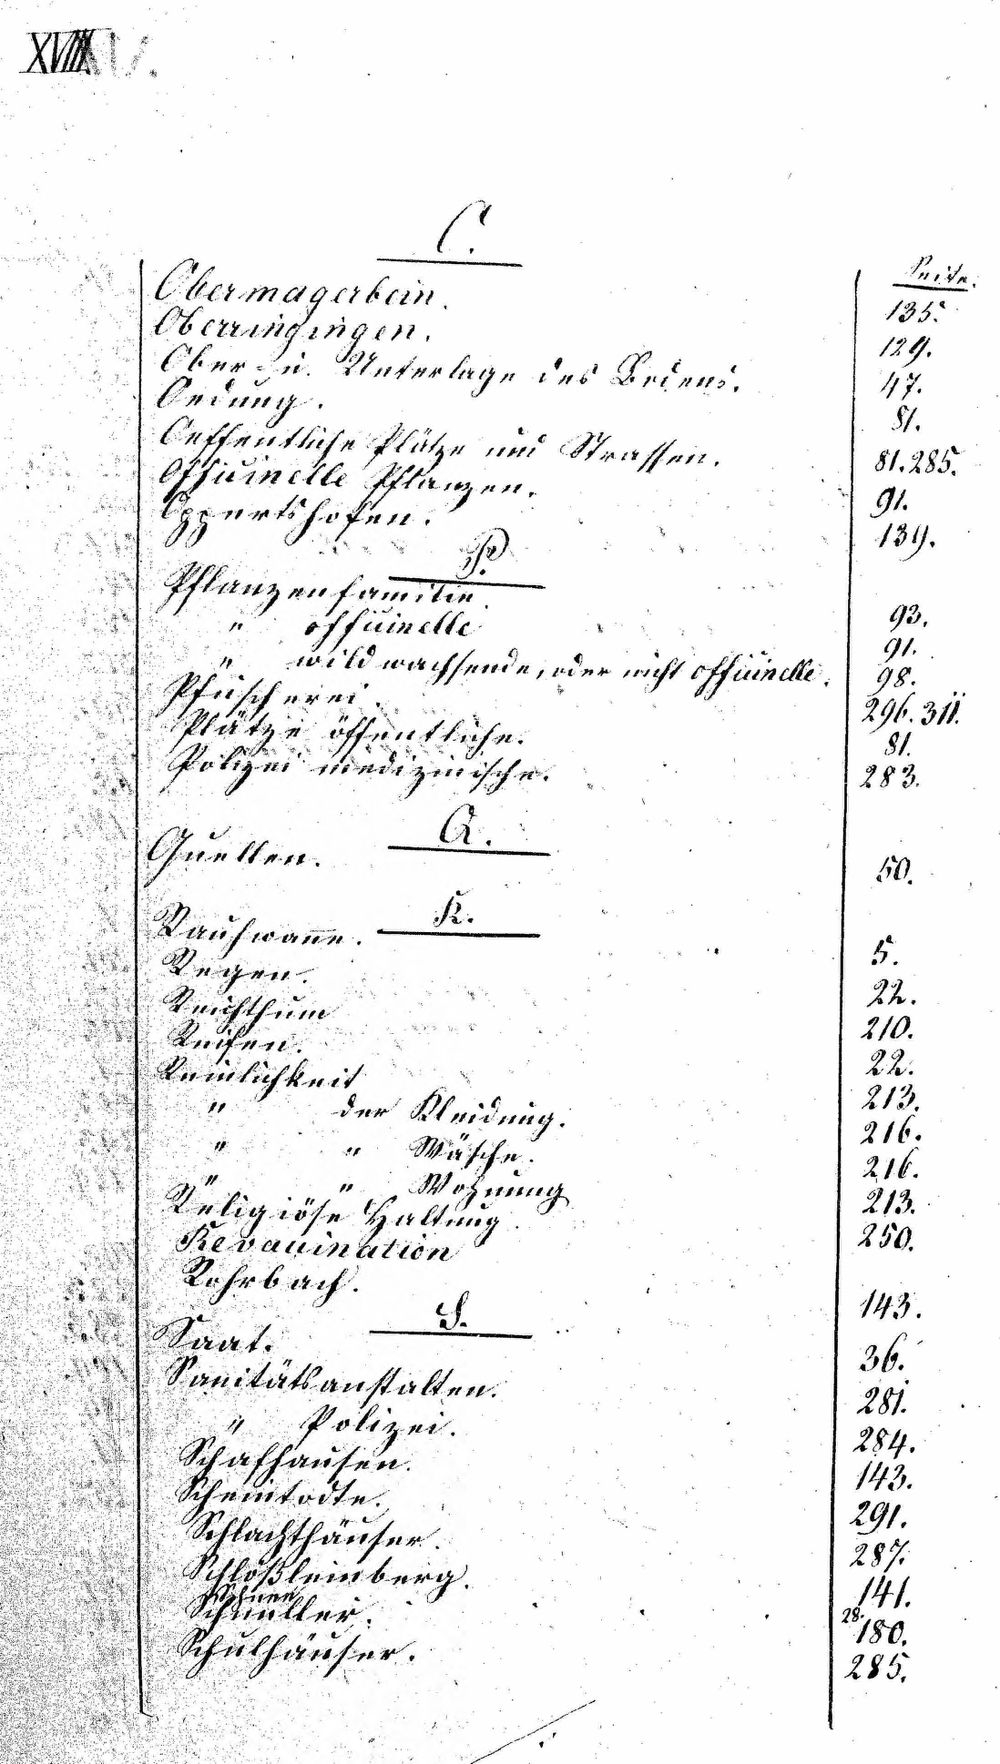 O.
Seite.
Obermagerbein. 135.
Oberringingen. 129.
Ober- u. Unterlage des Bodens. 47.
Oedung. 81.
Oeffentliche Plätze und Strassen. 81. 285.
Officinelle Pflanzen. 91.
Oppertshofen. 139.
P.
Pflanzenfamilie. 93.
" officinelle 91.
" wild wachsende, oder nicht officinelle. 98.
Pfuscherei. 296. 311.
Plätze öffentliche. 81.
Polizei medizinische. 283.
Q.
Quellen. 50.
R.
Rauhwanne. 5.
Regen. 22.
Reichthum 210.
Reifen. 22.
Reinlichkeit 213.
" der Kleidung. 216.
" " Wäsche. 216.
" " Wohnung 213.
Religiöse Haltung. 250.
Revaccination
Rohrbach. 143.
S.
Saat. 36.
Sanitätsanstalten. 281.
" Polizei. 284.
Schafhausen. 143.
Scheintodte. 291.
Schlachthäuser. 287.
Schlößleinberg. 141.
Schnee 28.
Schmuller. 180.
Schulhäuser. 285.